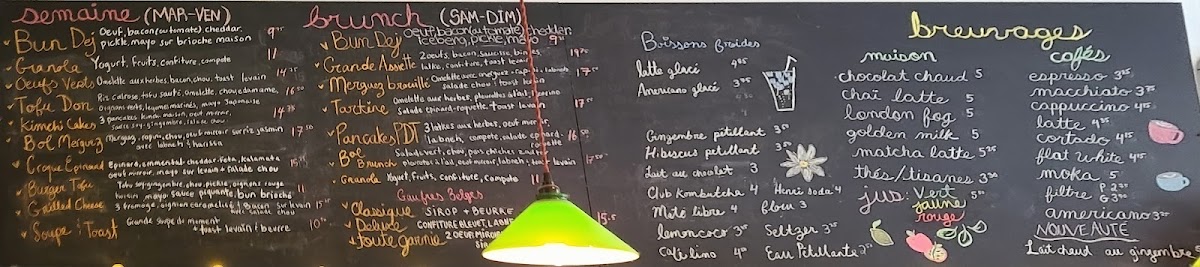 semaine (MAR-VEN)
Bun Dej Oeuf, bacon (ou tomate) cheddar, 9⁹⁵
pickle, mayo sur brioche maison
Granola Yogurt, fruits, confiture, compote 11
Oeufs Verts Omelette aux herbes, bacon, chou, toast levain
Tofu Don Riz calrose, tofu sauté, omelette, chou, edamame, 16⁵⁰
Oignons verts, légumes marinés, mayo Japonaise
Kimchi Cakes 3 pancakes kimchi maison, oeuf miroir,
sauce soy-gingembre, salade chou
Bol Merguez Merguez, rapini, chou, oeuf miroir sur riz jasmin 17⁵⁰
avec labneh & harissa
Croque Épinard Épinard, emmental-cheddar-feta, kalamata
oeuf miroir, mayo sur levain + salade chou
Burger Tofu Tofu soy-gingembre, chou, pickle, oignons rouge
mayo sauce piquante, bun brioché 11
Grilled Cheese 3 fromages, oignon caramélisé & Bacon sur levain
avec salade chou
Soupe & Toast Grande Soupe du moment
+ toast levain & beurre
brunch (SAM-DIM)
Bun Dej oeuf, bacon (ou tomate), cheddar,
Iceberg, pickle, mayo 9⁹⁵
Grande Assiette 2 oeufs, bacon, saucisse, bines,
latke, confiture, toast levain
Merguez brouillé Omelette avec merguez
salade chou & toast 17⁵⁰
Tartine Omelette aux herbes, pleurotes à l'ail,
salade épinard-roquette, toast levain
Pancakes PDT 3 latkes aux herbes, oeuf miroir,
labneh, compote, salade épinard 16⁵⁰
Bol Brunch Salade vert, chou, pois chiches
pleurotes à l'ail, oeuf miroir, labneh & toast levain 17⁵⁰
Granola Yogurt, fruits, confiture, compote 11
Gaufres Belges
Classique SIROP + BEURRE
Deluxe CONFITURE BLEUET, LABNEH
toute garnie 2 OEUF MIROIR
Boissons froides
latté glacé 4⁹⁵
Americano glacé 3⁷⁵
Gingembre pétillant 3⁵⁰
Hibiscus pétillant 3⁵⁰
Lait au chocolat 3
Club Kombutcha 4 Henri soda 4
Maté libre 4 flow 3
lemoncoco 3 Seltzer 3
Café lino 4 Eau Pétillante 2
breuvages
maison
chocolat chaud 5
chaï latte 5
london fog 5
golden milk 5
matcha latte 5²⁵
thés/tisanes 3
jus: Vert
jaune 5
rouge
cafés
espresso 3²⁵
macchiato 3⁷⁵
cappuccino 4²⁵
latte 4
cortado 4¹⁵
flat white 4¹⁵
moka 5
filtre P 2
G 3
americano 3
NOUVEAUTÉ
Lait chaud au gingembre